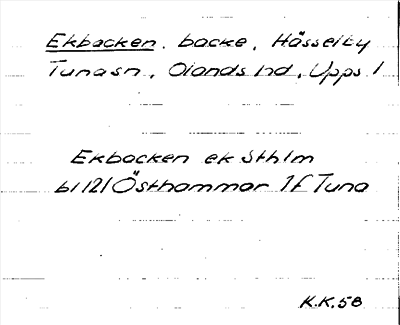 Ekbacken, backe, Hässelby
Tuna sn, Olands hd, Upps l
Ekbacken ek Sthlm
bl 121 Östhammar 1f Tuna
K.K. 58